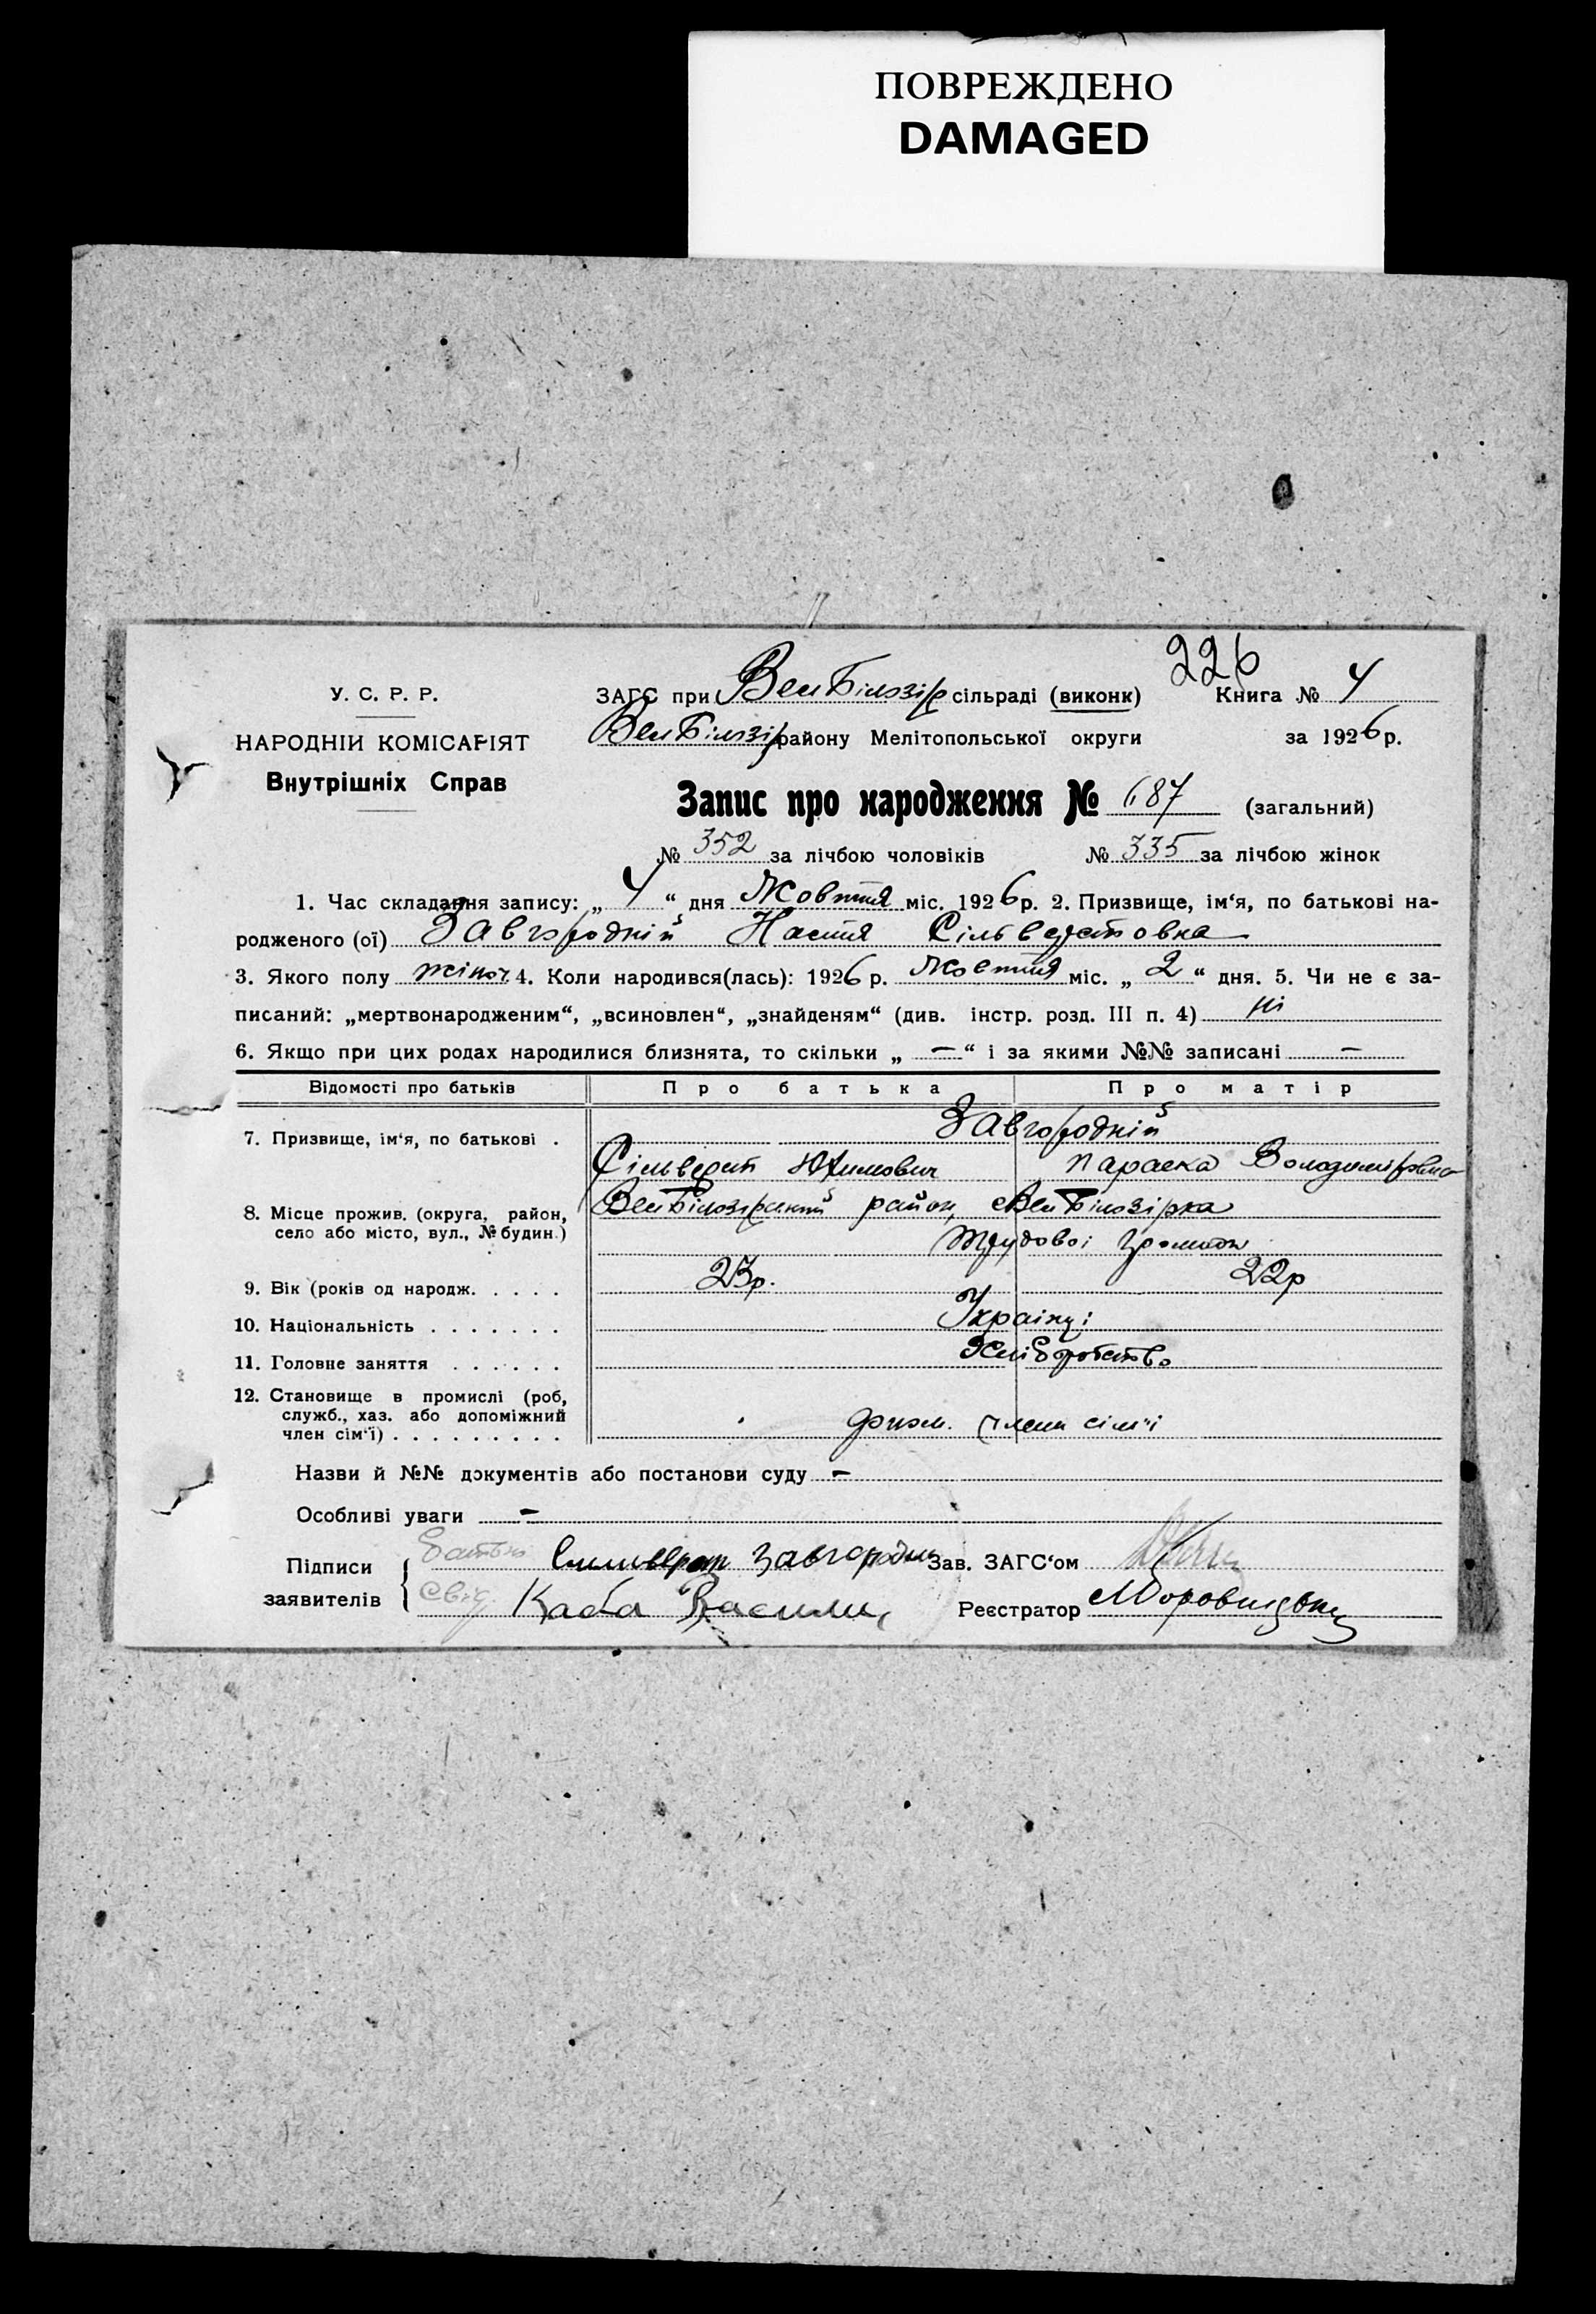 ПОВРЕЖДЕНО
DAMAGED
226
У. С. Р. Р.
НАРОДНІИ КОМІСАРІЯТ
Внутрішніх Справ
ЗАГС при ВелБілозір сільраді (виконк) Книга № 4
ВелБілозір району Мелітопольської округи за 1926 р.
Запис про народження № 687 (загальний)
№ 352 за лічбою чоловіків № 335 за лічбою жінок
1. Час складання запису: „ 4 “ дня Жовтня міс. 1926 р. 2. Призвище, ім‘я, по батькові на-
родженого (ої) Завгородній Настя Сільверстовна
3. Якого полу жіноч 4. Коли народився(лась): 1926 р. Жовтня міс. „ 2 “ дня. 5. Чи не є за-
писаний: „мертвонародженим“, „всиновлен“, „знайденям“ (див. інстр. розд. III п. 4) ні
6. Якщо при цих родах народилися близнята, то скільки „ — “ і за якими №№ записані —
Відомості про батьків Про батька Про матір
7. Призвище, ім‘я, по батькові . Завгородній
Сільверст Юхимович Параска Володимировна
8. Місце прожив. (округа, район, село або місто, вул., № будин.) ВелБілозірський район, ВелБілозірка
Трудової громади
9. Вік (років од народж. . . . . 23р. 22р
10. Національність . . . . . . . Українці
11. Головне заняття . . . . . . Хліборобство
12. Становище в промислі (роб,
служб., хаз. або допоміжний
член сім‘ї) . . . . . . . . . член сім'ї
Назви й №№ документів або постанови суду —
Особливі уваги —
Підписи заявителів
батько Сильверст Завгородни Зав. ЗАГС‘ом
Свід. Каба Василь Реєстратор